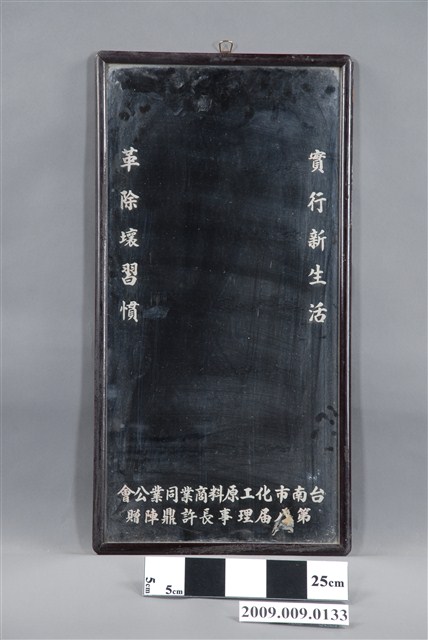 實行新生活
革除壞習慣
台南市化工原料商業同業公會
第 屆理事長許鼎陣贈
5cm
5cm
25cm
2009.009.0133